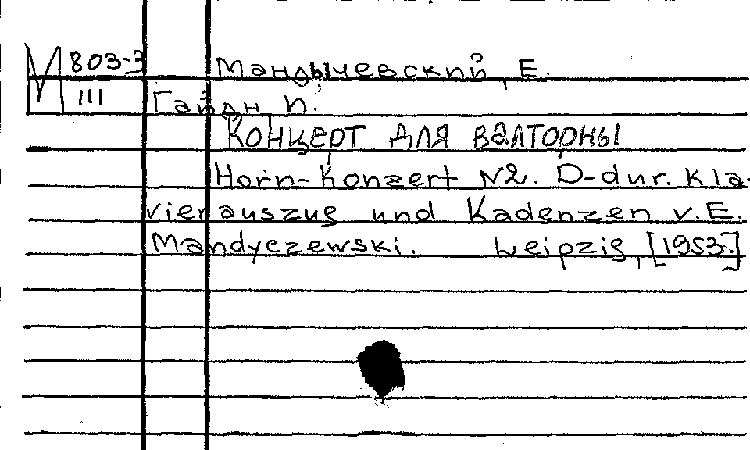 М 803-3 Мандычевский, Е.
III Гайдн, И.
Концерт для валторны
Horn-Konzert N2. D-dur. Kla-
vierauszug und Kadenzen v. E.
Mandyczewski. Leipzig, [1953.]